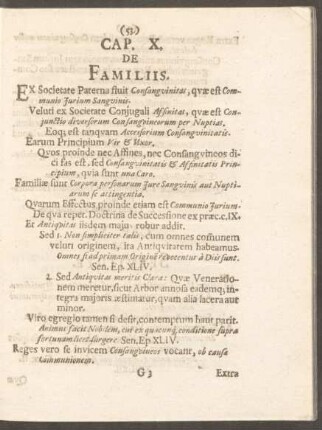 (53.)
CAP. X.
DE
FAMILIIS.
EX Societate Paterna fluit Consangvinitas, qvæ est Com-
munio Jurium Sangvinis.
Veluti ex Societate Conjugali Affinitas, qvæ est Con-
junctio diversorum Consangvineorum per Nuptias,
Eoq; est tanqvam Accessorium Consangvinitatis.
Earum Principium Vir & Uxor.
Qvos proinde nec Affines, nec Consangvineos di-
ci fas est, sed Consangvinitatis & Affinitatis Prin-
cipium, qvia sunt una Caro.
Familiæ sunt Corpora personarum Jure Sangvinis aut Nuptia-
rum se attingentia.
Qvarum Effectus proinde etiam est Communio Jurium.
De qva reper. Doctrina de Successione ex præc.c.IX.
Et Antiqvitas iisdem majus robur addit.
Sed 1. Non simpliciter talis, cum omnes communem
veluti originem, ita Antiqvitatem habeamus.
Omnes si ad primam Originem revocentur à Diis sunt.
Sen. Ep. XLIV.
2. Sed Antiqvitas meritis Clara: Qvæ Veneratio-
nem meretur, sicut Arbor annosa eademq; in-
tegra majoris æstimatur, qvam alia sacera aut
minor.
Viro egregio tamen si desit, contemptum haut parit.
Animus facit Nobilem, cui ex qvacunq; conditione supra
fortunam licet surgere. Sen. Ep. XLIV.
Reges vero se invicem Consangvineos vocant, ob causæ
Communionem.
G 3
Extra